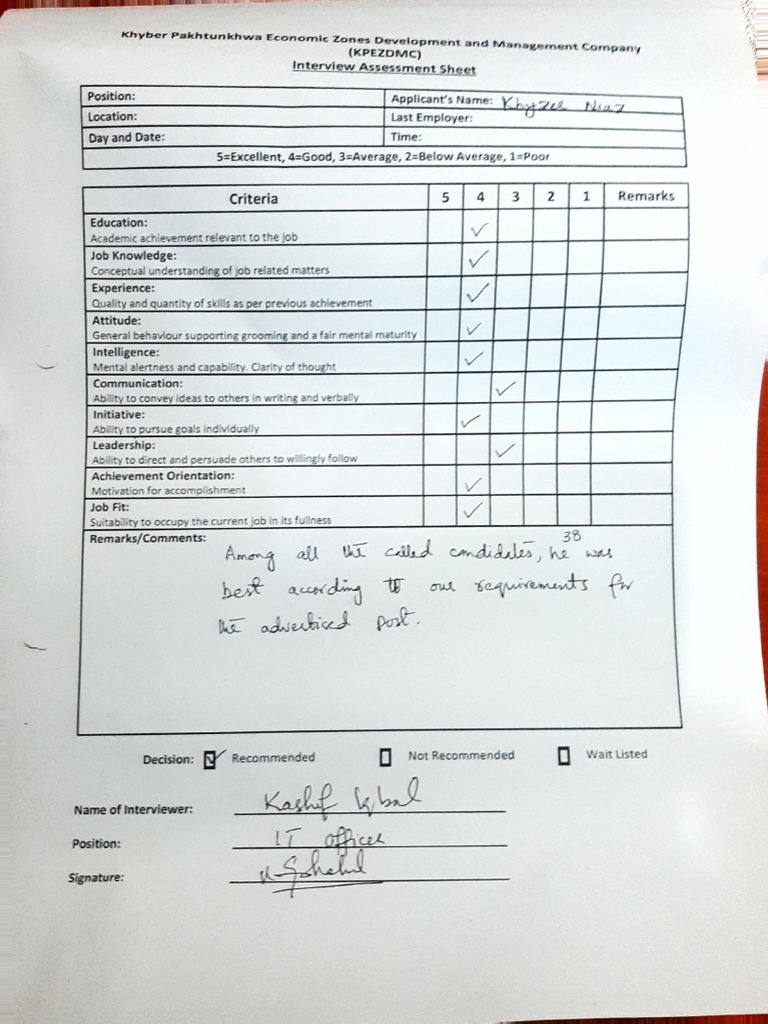 Khyber Pakhtunkhwa Economic Zones Development and Management Company
(KPEZDMC)
Interview Assessment Sheet
Position: Applicant's Name: Khyzer Niaz
Location: Last Employer:
Day and Date: Time:
5=Excellent, 4=Good, 3=Average, 2=Below Average, 1=Poor
Criteria 5 4 3 2 1 Remarks
Education:
Academic achievement relevant to the job ✓
Job Knowledge:
Conceptual understanding of job related matters ✓
Experience:
Quality and quantity of skills as per previous achievement ✓
Attitude:
General behaviour supporting grooming and a fair mental maturity ✓
Intelligence:
Mental alertness and capability. Clarity of thought ✓
Communication:
Ability to convey ideas to others in writing and verbally ✓
Initiative:
Ability to pursue goals individually ✓
Leadership:
Ability to direct and persuade others to willingly follow ✓
Achievement Orientation:
Motivation for accomplishment ✓
Job Fit:
Suitability to occupy the current job in its fullness ✓
Remarks/Comments: 38
Among all the called candidates, he was
best according to our requirements for
the advertised post.
Decision: ✓ Recommended Not Recommended Wait Listed
Name of Interviewer: Kashif Iqbal
Position: IT Officer
Signature: